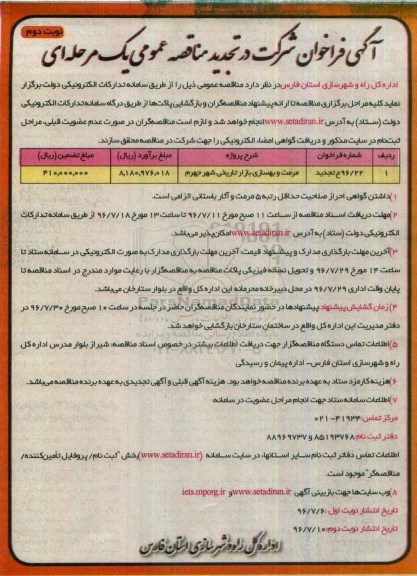 نوبت دوم
آگهی فراخوان شرکت در تجدید مناقصه عمومی یک مرحله‌ای
اداره کل راه و شهرسازی استان فارس در نظر دارد مناقصه عمومی ذیل را از طریق سامانه تدارکات الکترونیکی دولت برگزار
نماید کلیه مراحل برگزاری مناقصه تا ارائه پیشنهاد مناقصه‌گران و بازگشایی پاکت‌ها از طریق درگاه سامانه تدارکات الکترونیکی
دولت (ستاد) به آدرس www.setadiran.ir انجام خواهد شد و لازم است مناقصه‌گران در صورت عدم عضویت قبلی، مراحل
ثبت‌نام در سایت مذکور و دریافت گواهی امضاء الکترونیکی را جهت شرکت در مناقصه محقق سازند.
ردیف شماره فراخوان شرح پروژه مبلغ برآورد (ریال) مبلغ تضمین (ریال)
۱ ۹۶/۲۲ع تجدید مرمت و بهسازی بازار تاریخی شهر جهرم ۸,۱۸۰,۹۷۶,۰۱۸ ۴۱۰,۰۰۰,۰۰۰
۱) داشتن گواهی احراز صلاحیت حداقل رتبه ۵ مرمت و آثار باستانی الزامی است.
۲) مهلت دریافت اسناد مناقصه از ساعت ۱۱ صبح مورخ ۹۶/۷/۱۱ تا ساعت ۱۳ مورخ ۹۶/۷/۱۸ از طریق سامانه تدارکات
الکترونیکی دولت (ستاد) به آدرس www.setadiran.ir امکان‌پذیر می‌باشد.
۳) آخرین مهلت بارگذاری مدارک و پیشنهاد قیمت: آخرین مهلت بارگذاری مدارک به صورت الکترونیکی در سامانه ستاد تا
ساعت ۱۴ مورخ ۹۶/۷/۲۹ و تحویل نسخه فیزیکی پاکت مناقصه به مناقصه‌گزار با رعایت موارد مندرج در اسناد مناقصه تا
پایان وقت اداری ۹۶/۷/۲۹ در محل دبیرخانه محرمانه این اداره کل واقع در بلوار ستارخان می‌باشد.
۴) زمان گشایش پیشنهاد: پیشنهادها در حضور نمایندگان مناقصه‌گران حاضر در جلسه در ساعت ۱۰ صبح مورخ ۹۶/۷/۳۰ در
دفتر مدیریت این اداره کل واقع در ساختمان ستارخان بازگشایی خواهد شد.
۵) اطلاعات تماس دستگاه مناقصه‌گزار جهت دریافت اطلاعات بیشتر در خصوص اسناد مناقصه: شیراز بلوار مدرس اداره کل
راه و شهرسازی استان فارس- اداره پیمان و رسیدگی
۶) هزینه کارمزد ستاد به عهده برنده مناقصه خواهد بود. هزینه آگهی قبلی و آگهی تجدیدی به عهده برنده مناقصه می‌باشد.
۷) اطلاعات سامانه ستاد جهت انجام مراحل عضویت در سامانه:
مرکز تماس: ۴۱۹۳۴-۰۲۱
دفتر ثبت نام: ۸۵۱۹۳۷۶۸ و ۸۸۹۶۹۷۳۷
اطلاعات تماس دفاتر ثبت نام سایر استانها، در سایت سامانه (www.setadiran.ir) بخش "ثبت نام/ پروفایل تأمین‌کننده/
مناقصه‌گر" موجود است.
۸) وب سایت‌ها جهت بازبینی آگهی www.setadiran.ir و iets.mporg.ir
تاریخ انتشار نوبت اول: ۹۶/۷/۶
تاریخ انتشار نوبت دوم: ۹۶/۷/۱۰
اداره کل راه و شهرسازی استان فارس